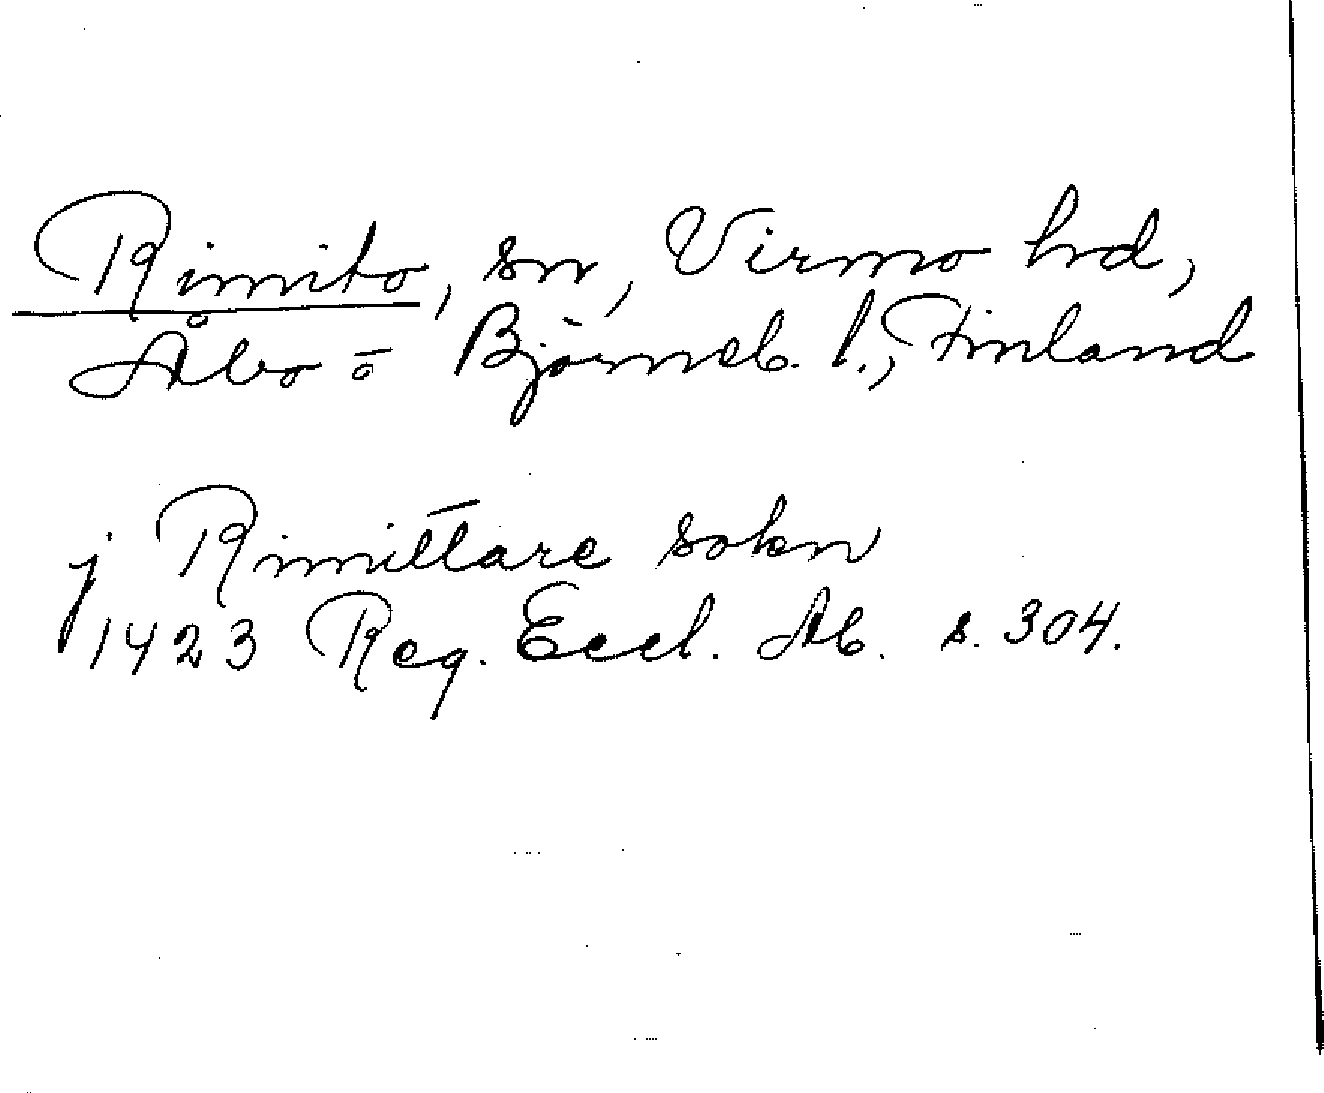 Rimito, sn, Virmo hd,
Åbo ō Björneb. l., Finland
j Rimittare sokn
1423 Reg. Eccl. Ab. s. 304.